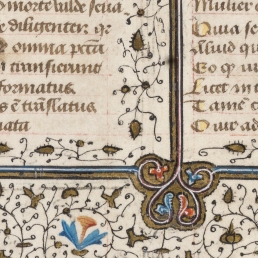 o morte valde seua
e diligenter qr
omnia pctā
n transierunt
formatus
us ē trāslatus
uata
Mulier
Quia se
illiud qu
Eo qr vi
Licet in
Tamē c
O uie ad